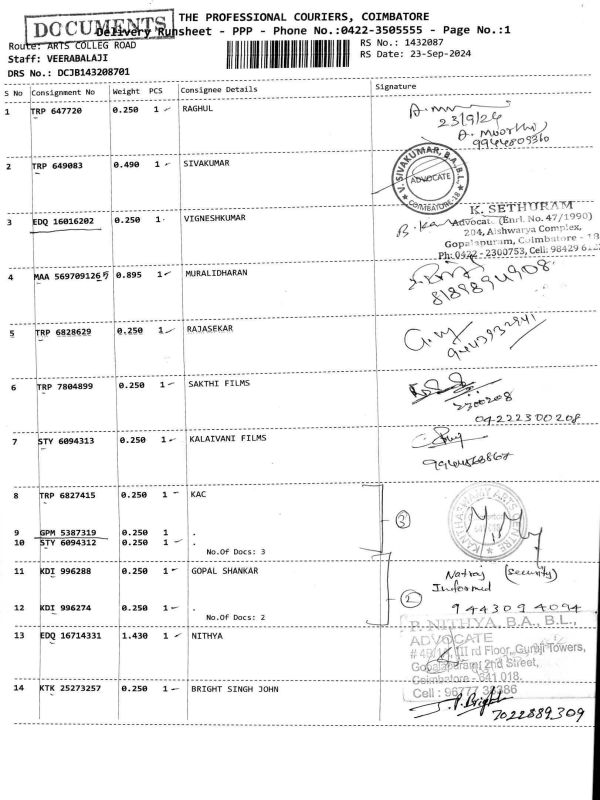 DOCUMENTS
THE PROFESSIONAL COURIERS, COIMBATORE
Delivery Runsheet - PPP - Phone No.:0422-3505555 - Page No.:1
Route: ARTS COLLEG ROAD
RS No.: 1432087
Staff: VEERABALAJI
RS Date: 23-Sep-2024
DRS No.: DCJB143208701
S No Consignment No Weight PCS Consignee Details Signature
1 TRP 647720 0.250 1 RAGHUL
23/9/24
A. Moorthy
9944809360
2 TRP 649083 0.490 1 SIVAKUMAR
V. SIVAKUMAR, B.A., B.L.,
ADVOCATE
COIMBATORE-18
3 EDQ 16016202 0.250 1 VIGNESHKUMAR
K. SETHURAM
Advocate (Enrl. No. 47/1990)
204, Aishwarya Complex,
Gopalapuram, Coimbatore - 18
Ph: 0422 - 2300753, Cell: 98429
4 MAA 569709126 0.895 1 MURALIDHARAN
8189894908
5 TRP 6828629 0.250 1 RAJASEKAR
9443932941
6 TRP 7804899 0.250 1 SAKTHI FILMS
2300208
04222300208
7 STY 6094313 0.250 1 KALAIVANI FILMS
8 TRP 6827415 0.250 1 KAC
9 GPM 5387319 0.250 1 .
10 STY 6094312 0.250 1 .
No.Of Docs: 3
3
11 KDI 996288 0.250 1 GOPAL SHANKAR
Natraj (security)
Informed
12 KDI 996274 0.250 1 .
No.Of Docs: 2
2
9443094094
13 EDQ 16714331 1.430 1 NITHYA
P. NITHYA, B.A., B.L.,
ADVOCATE
III rd Floor, Guruji Towers,
Gopalapuram 2nd Street,
Coimbatore - 641 018.
14 KTK 25273257 0.250 1 BRIGHT SINGH JOHN
J. P. Bright
7022889309